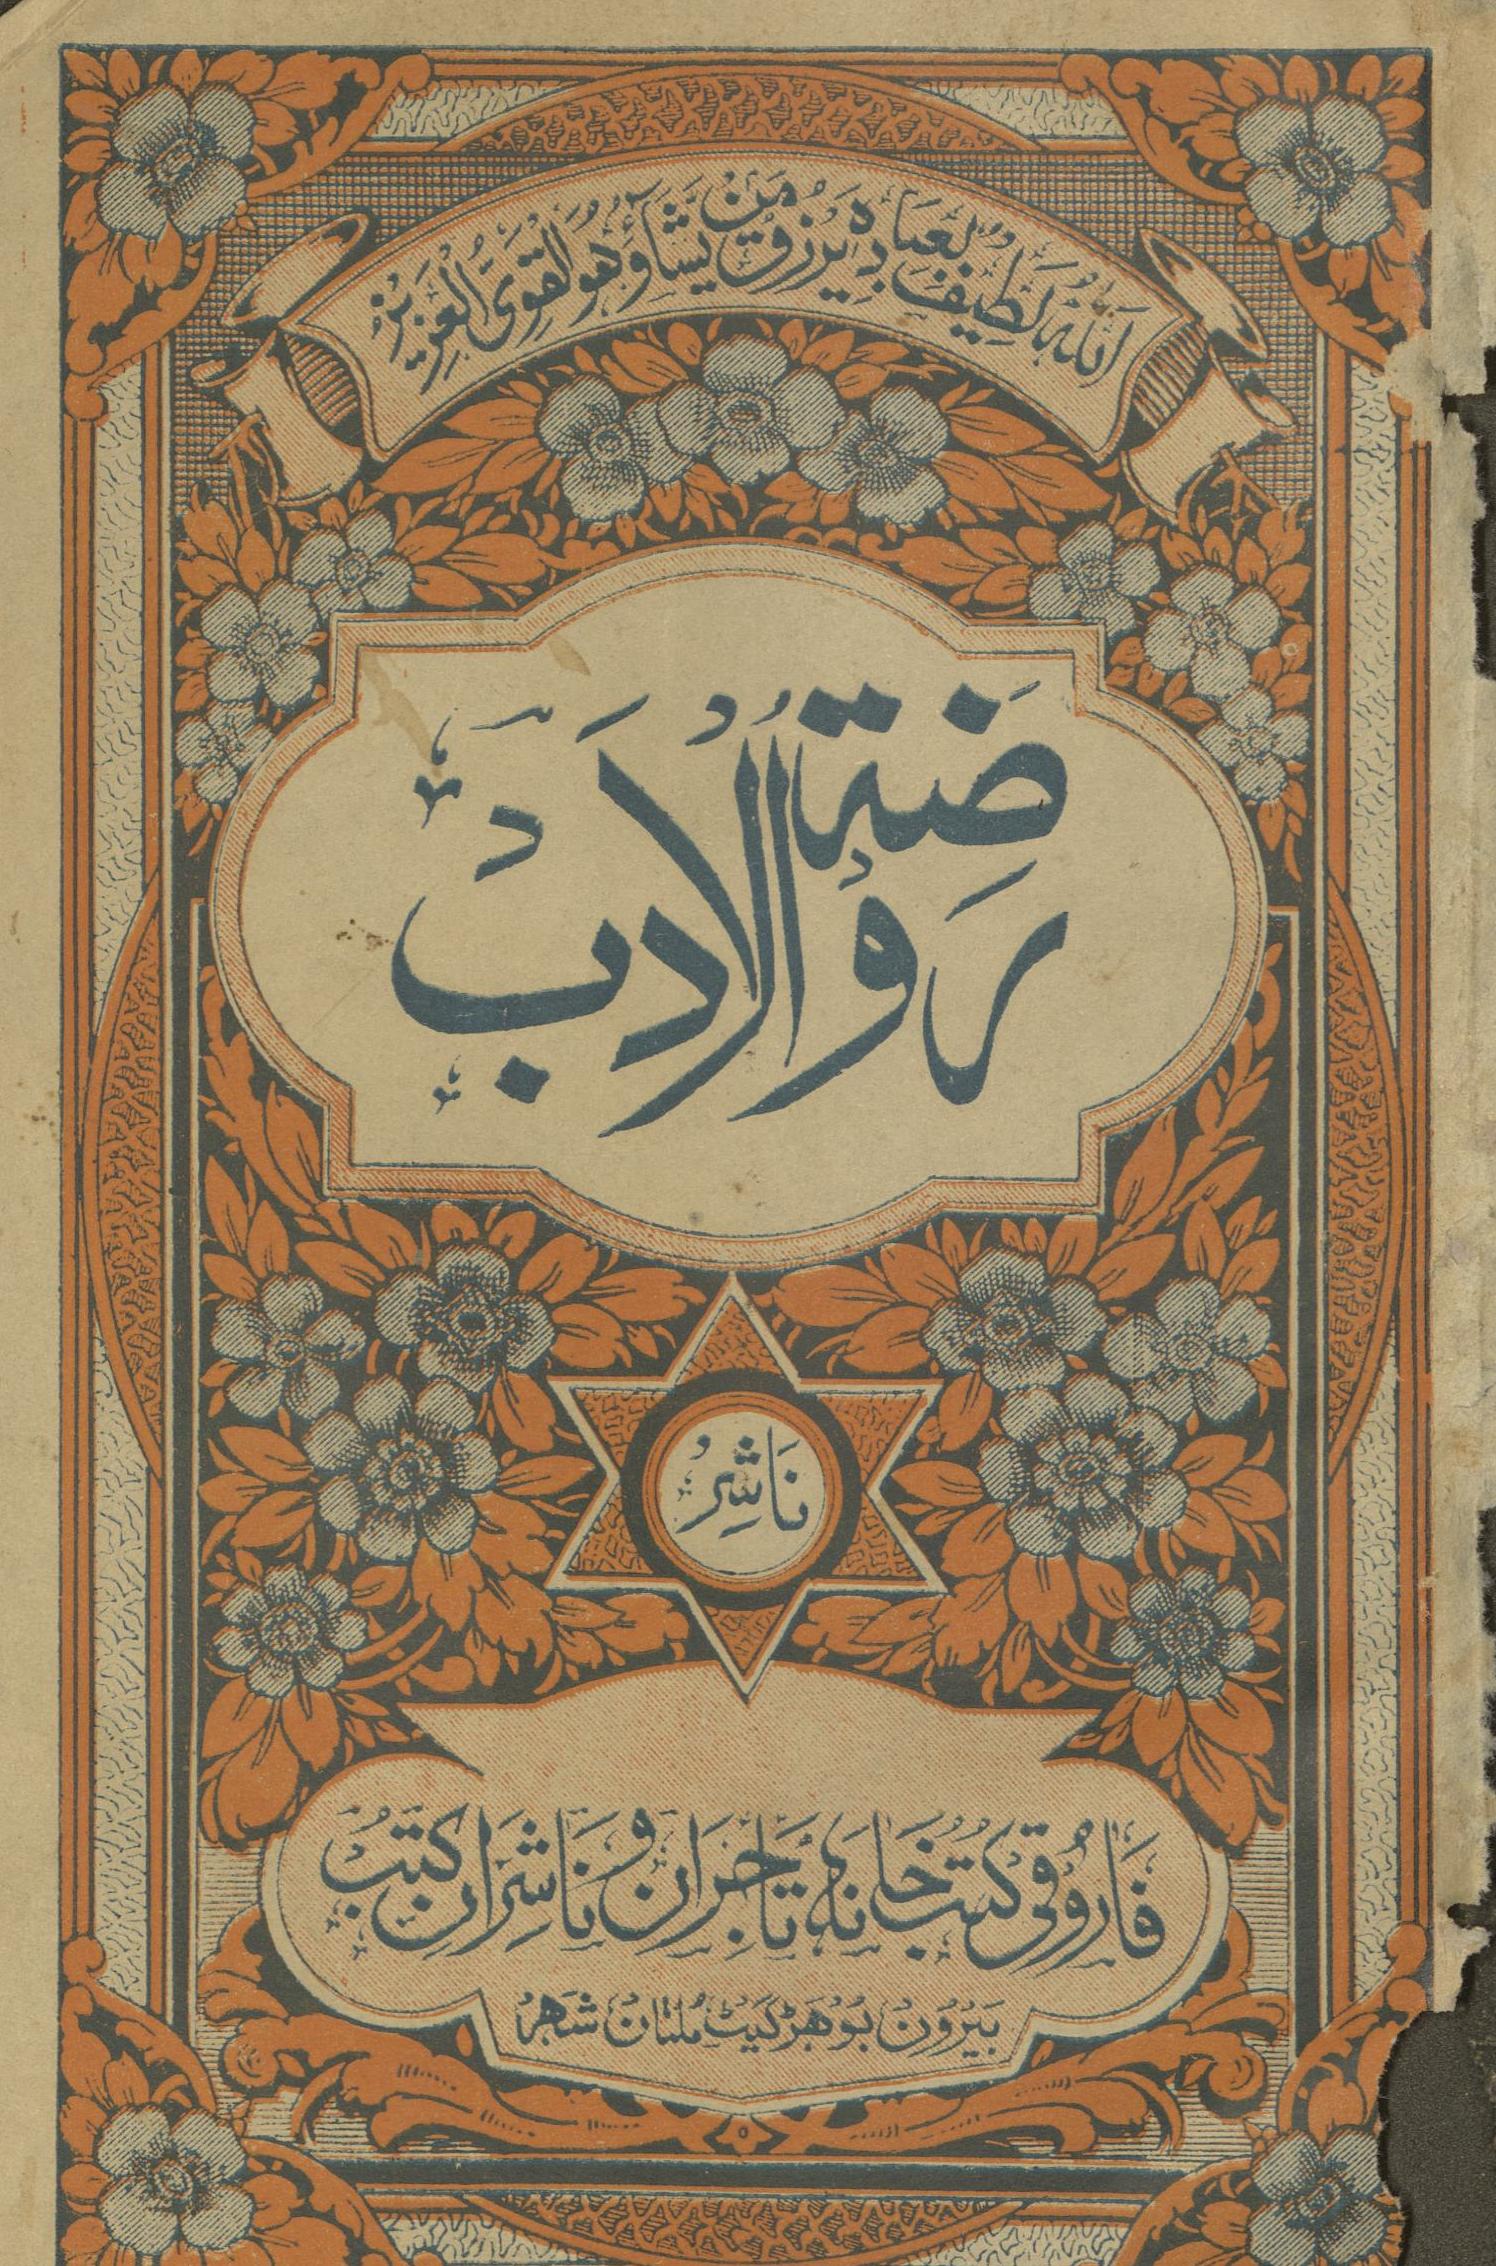 اَللّٰهُ لَطِیْفٌ بِعِبَادِهٖ یَرْزُقُ مَنْ یَّشَآءُ وَهُوَ الْقَوِیُّ الْعَزِیْزُ
رَوْضَةُ الْاَدَبْ
نَاشِرْ
فَارُوْقِی کُتُبْ خَانَهْ تَاجِرَانْ و نَاشِرَانْ کُتُبْ
بَیْرُوْنْ بُوْهَڑْ گَیٹْ مُلتَانْ شَهَرْ